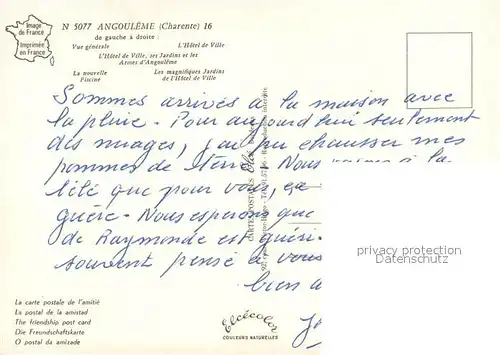 Image
de France
Imprimée
en France
N 5077 ANGOULÊME (Charente) 16
de gauche à droite :
Vue générale L'Hôtel de Ville
L'Hôtel de Ville, ses Jardins et les
Armes d'Angoulême
La nouvelle Les magnifiques Jardins
Piscine de l'Hôtel de Ville
Sommes arrivés à la maison avec
la pluie. Pour aujourd'hui seulement
des nuages, j'ai pu chausser mes
pommes de terre. Nous
télé que pour vous,
guère. Nous esperons que
de Raymonde est guéri.
souvent pensé à vous
bien a
privacy protection
Datenschutz
La carte postale de l'amitié
La postal de la amistad
The friendship post card
Die Freundschaftskarte
O postal da amizade
Elcécolor
COULEURS NATURELLES